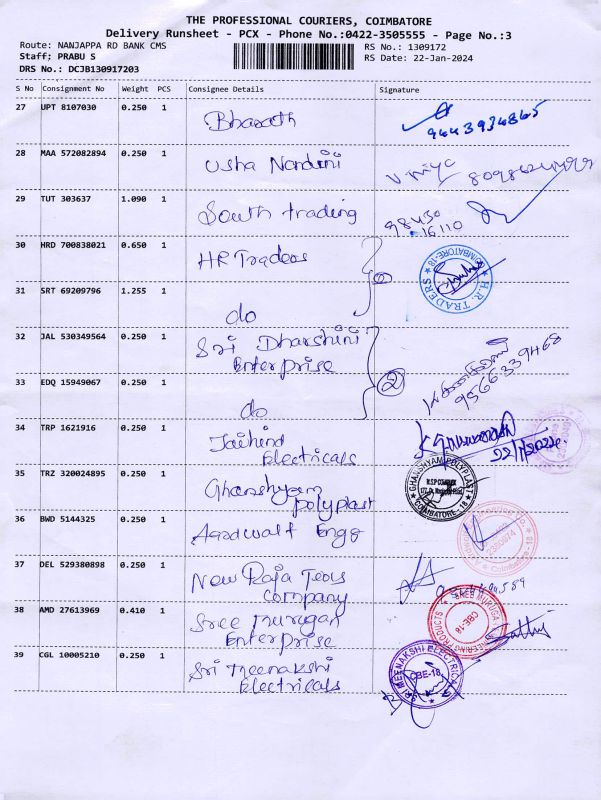 THE PROFESSIONAL COURIERS, COIMBATORE
Delivery Runsheet - PCX - Phone No.:0422-3505555 - Page No.:3
Route: NANJAPPA RD BANK CMS
RS No.: 1309172
Staff; PRABU S
RS Date: 22-Jan-2024
DRS No.: DCJB130917203
S No Consignment No Weight PCS Consignee Details Signature
27 UPT 8107030 0.250 1 Bharath
9443934865
28 MAA 572082894 0.250 1 Usha Nandini
29 TUT 303637 1.090 1 South trading
98430
16110
30 HRD 700838021 0.650 1 HR Traders
H.R. TRADERS
COIMBATORE-18
31 SRT 69209796 1.255 1 do
32 JAL 530349564 0.250 1 Sri Dharshini
Enterprise
2
9566339468
33 EDQ 15949067 0.250 1 do
34 TRP 1621916 0.250 1 Jaihind
Electricals
22/1/2024
35 TRZ 320024895 0.250 1 Ghanshyam
polyplast
GHANSHYAM POLYPLAST
COIMBATORE - 18
36 BWD 5144325 0.250 1 Aardwalt Engg
Coimbatore - 18
37 DEL 529380898 0.250 1 New Raja Tex
Company
38 AMD 27613969 0.410 1 Sree murugan
Enterprise
SREE MURUGA
ENGINEERING PRODUCTS
CBE-18
39 CGL 10005210 0.250 1 Sri meenakshi
Electricals
SRI MEENAKSHI ELECTRICALS
CBE-18